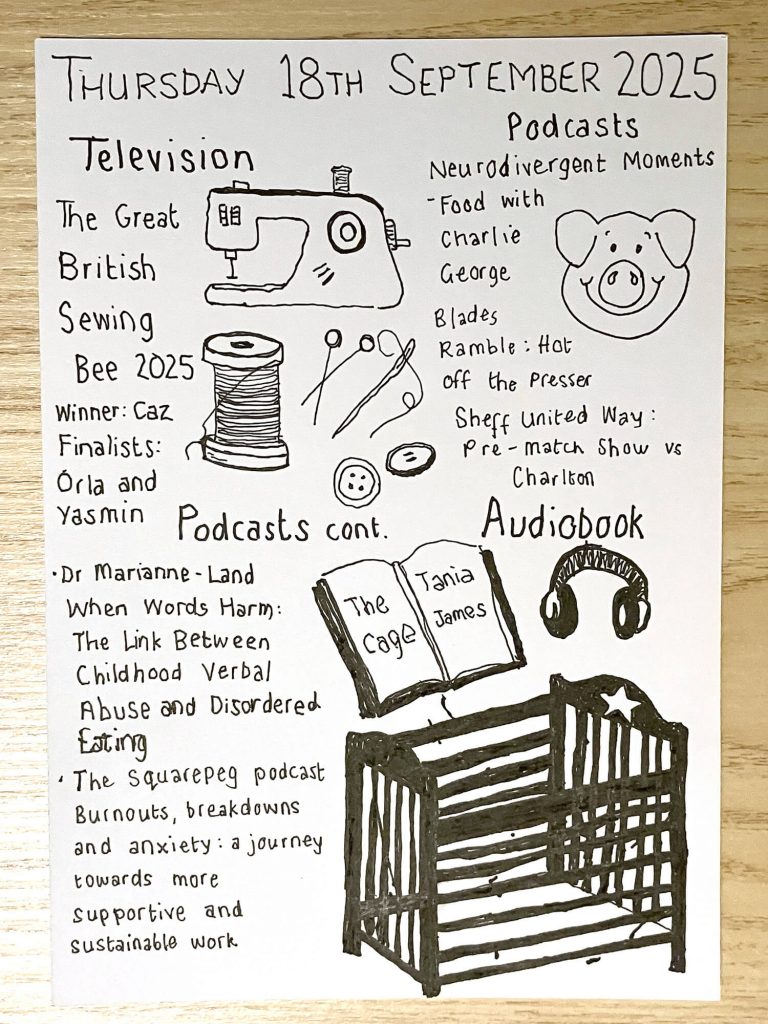 THURSDAY 18TH SEPTEMBER 2025
Television
The Great
British
Sewing
Bee 2025
Winner: Caz
Finalists:
Órla and
Yasmin
Podcasts
Neurodivergent Moments
- Food with
Charlie
George
Blades
Ramble: Hot
off the Presser
Sheff United Way:
Pre-match Show vs
Charlton
Podcasts cont.
· Dr Marianne-Land
When Words Harm:
The Link Between
Childhood Verbal
Abuse and Disordered
Eating
· The Squarepeg podcast
Burnouts, breakdowns
and anxiety: a journey
towards more
supportive and
sustainable work
Audiobook
The
Cage
Tania
James